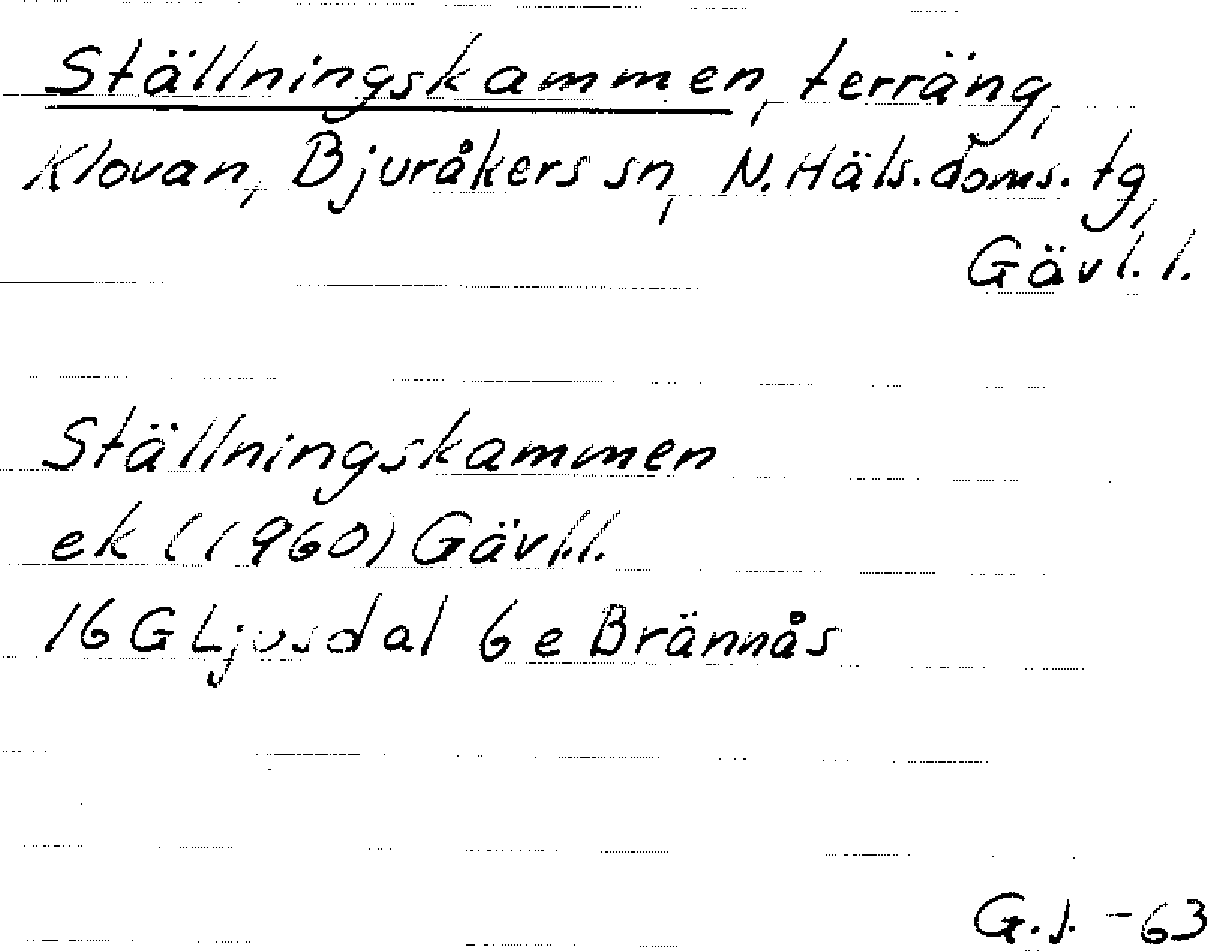 Ställningskammen, terräng,
Klovan, Bjuråkers sn, N. Häls. doms. tg,
Gävl. l.
Ställningskammen
ek (1960) Gävl. l.
16 G Ljusdal 6 e Brännås
G.J. -63